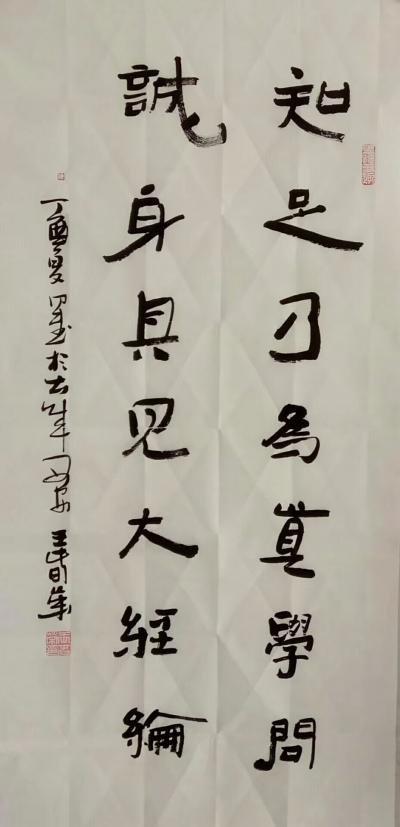 知足乃為真學問
誠身具見大經綸
丁酉夏 於古 王青